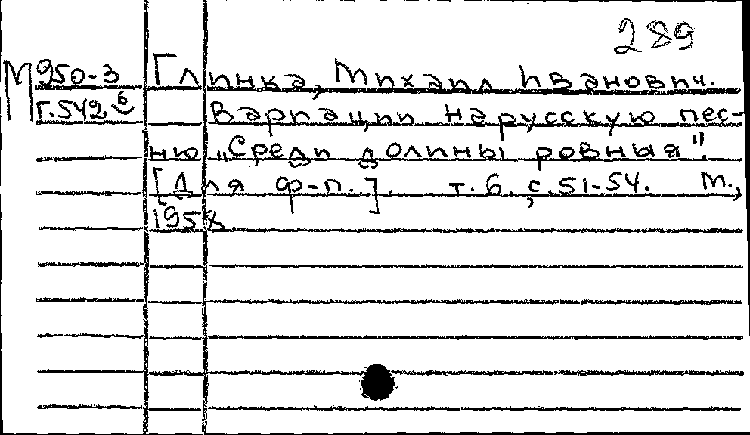 289
М 950-3 Глинка, Михаил Иванович.
Г.542 б Вариации на русскую пес-
ню „Среди долины ровныя".
[Для ф-п.]. т.6. с.51-54. М.,
1958